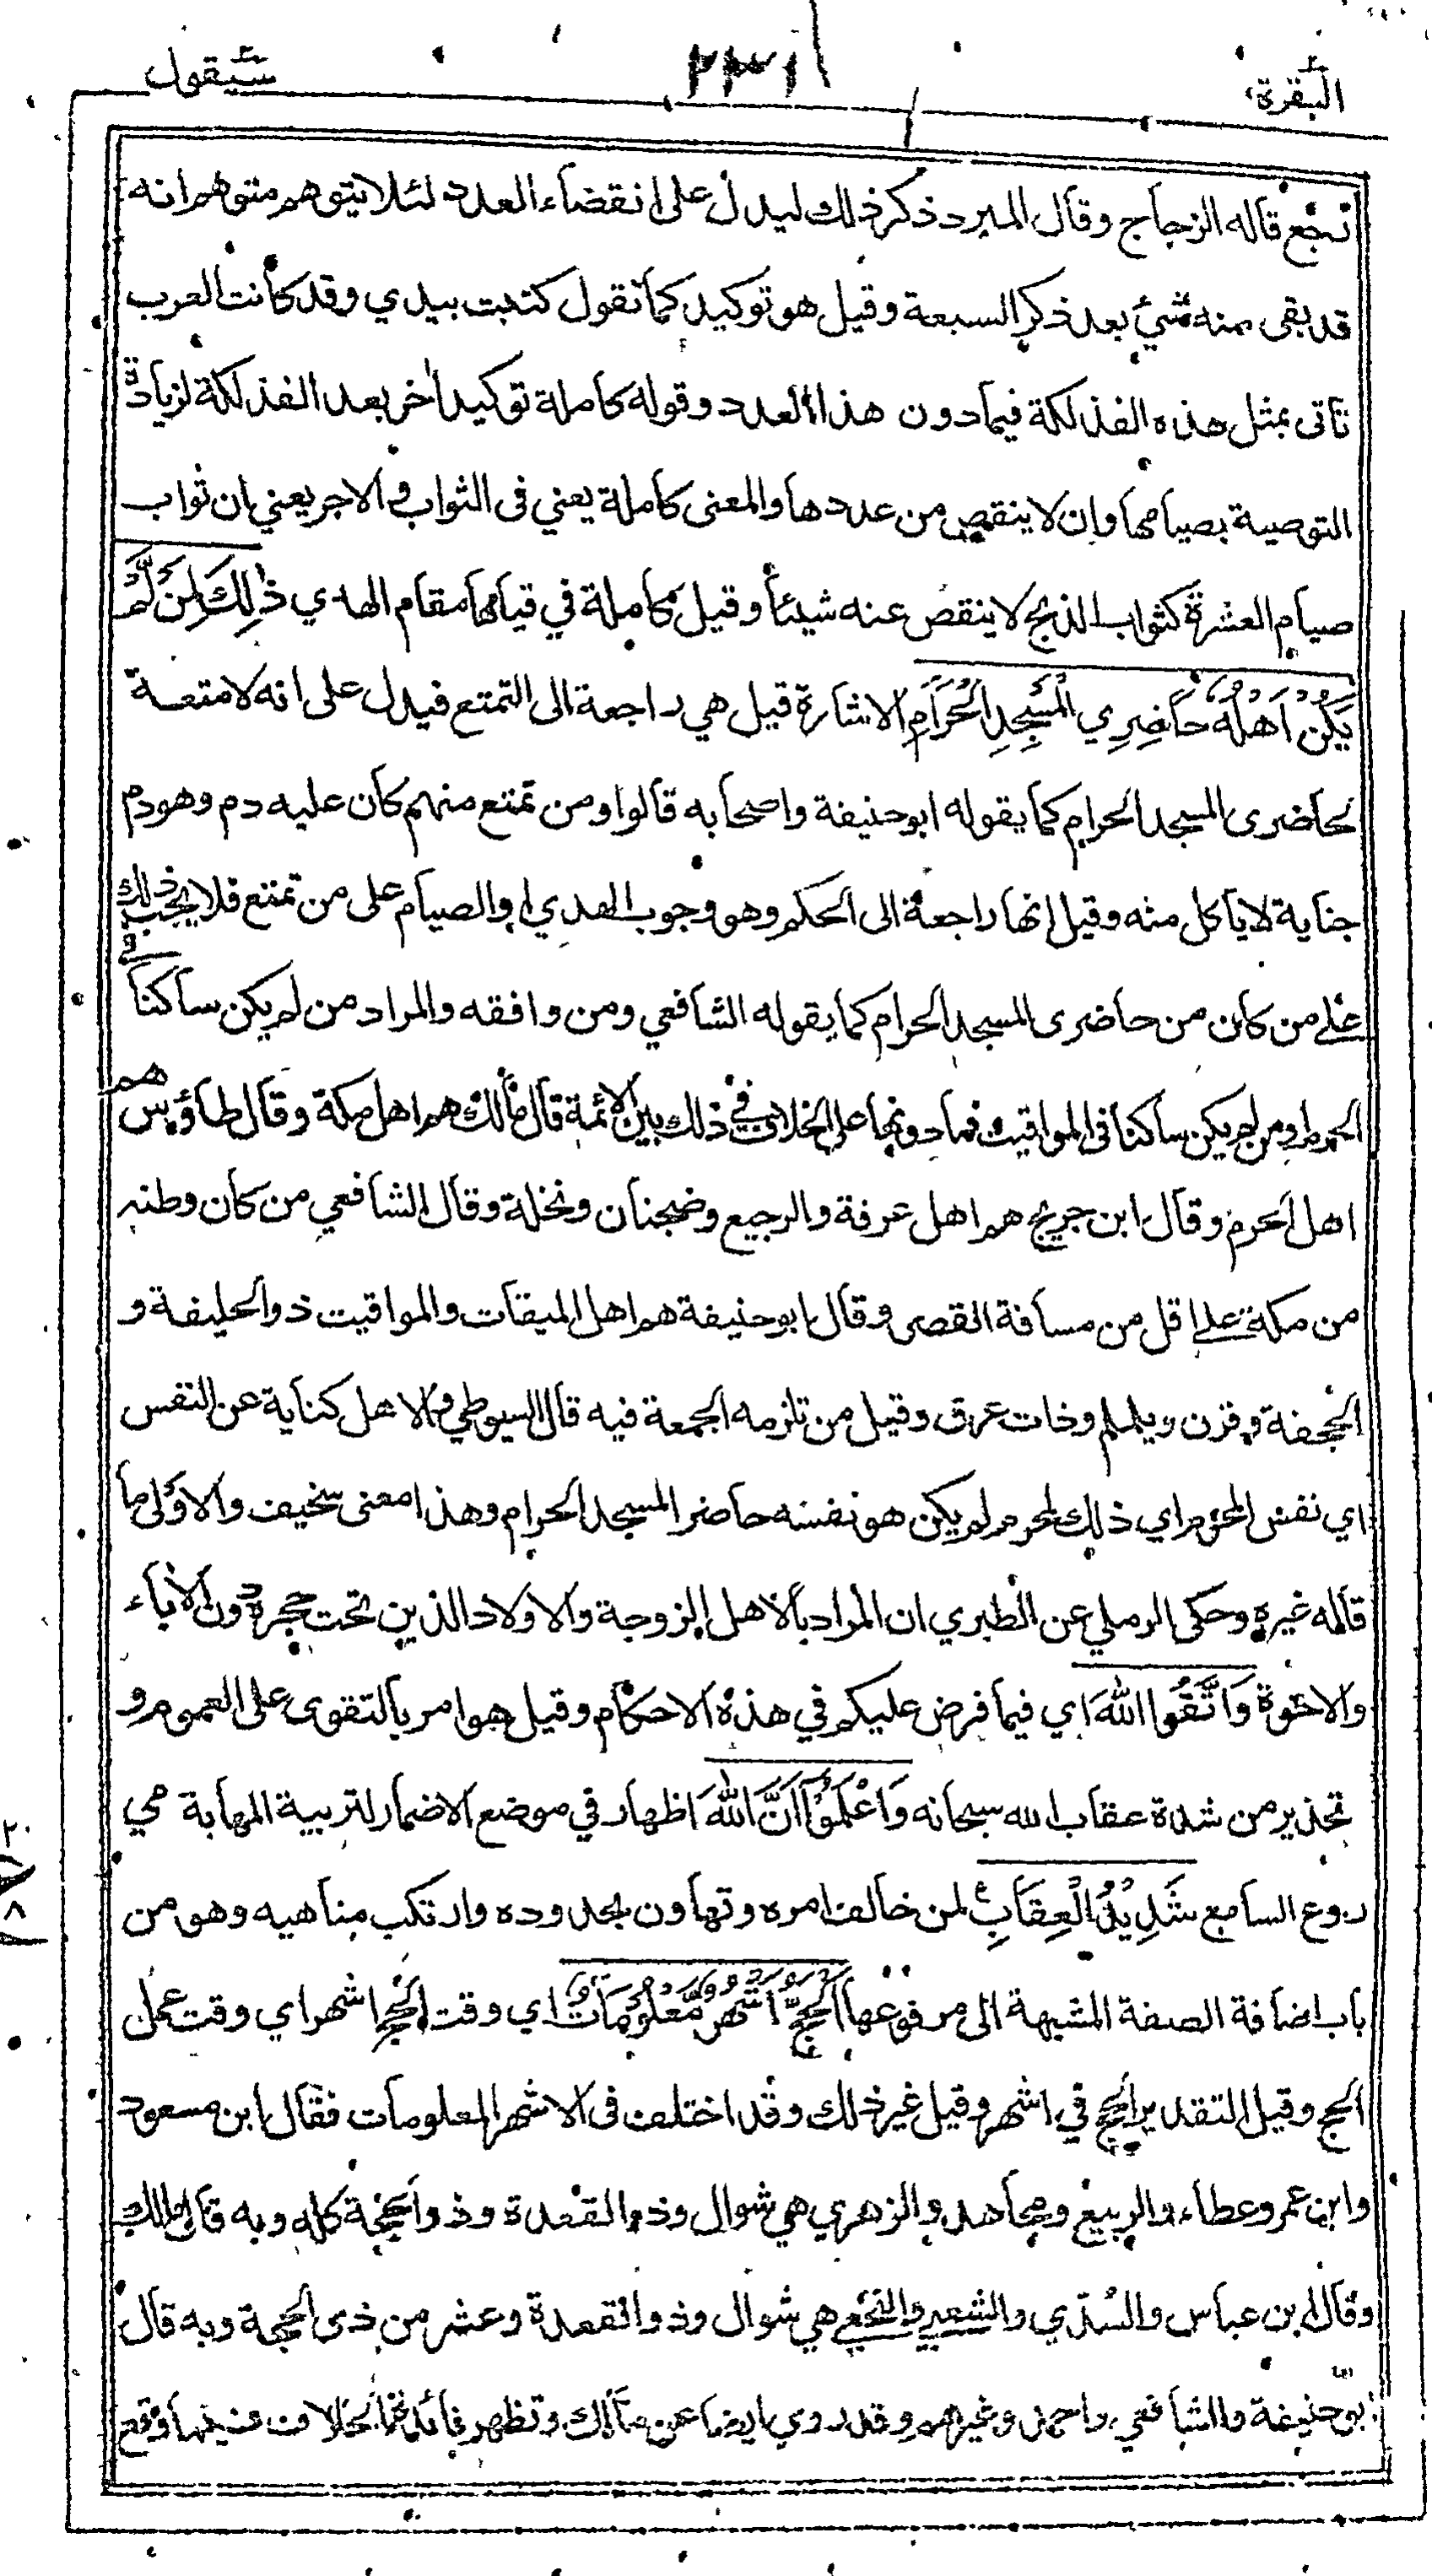 البقرة
٢٣١
سيقول
رجع قاله الزجاج وقال المبرد ذكر ذلك ليدل على انقضاء العدد لئلا يتوهم متوهم انه
قد بقى منه شئ بعد ذكر السبعة وقيل هو توكيد كما تقول كتبت بيدي وقد كانت العرب
تاتى بمثل هذه الفذلكة فيما دون هذا العدد وقوله كاملة توكيد اخر بعد الفذلكة لزيادة
التوصية بصيامها وان لا ينقص من عددها والمعنى كاملة يعني فى الثواب والاجر يعني ان ثواب
صيام العشرة كثواب الذبح لا ينقص عنه شيئا وقيل كاملة في قيامها مقام الهدي ذٰلِكَ لِمَنْ لَّمْ
يَكُنْ اَهْلُهٗ حَاضِرِي الْمَسْجِدِ الْحَرَامِ الاشارة قيل هي راجعة الى التمتع فيدل على انه لا متعة
لحاضرى المسجد الحرام كما يقوله ابو حنيفة واصحابه قالوا ومن تمتع منهم كان عليه دم وهو دم
جناية لا يأكل منه وقيل انها راجعة الى الحكم وهو وجوب الهدي او الصيام على من تمتع فلا يجب ذلك
على من كان من حاضرى المسجد الحرام كما يقوله الشافعي ومن وافقه والمراد من لم يكن ساكنا في
الحرم او من لم يكن ساكنا فى المواقيت فما دونها على الخلاف في ذلك بين الائمة قال مالك هم اهل مكة وقال طاؤس هم
اهل الحرم وقال ابن جريج هم اهل عرفة والرجيع وضجنان ونخلة وقال الشافعي من كان وطنه
من مكة على اقل من مسافة القصر وقال ابو حنيفة هم اهل الميقات والمواقيت ذو الحليفة و
الجحفة وقرن ويلملم وذات عرق وقيل من تلزمه الجمعة فيه قال السيوطي والاهل كناية عن النفس
اي نفس المحرم اي ذلك لمحرم لم يكن هو نفسه حاضر المسجد الحرام وهذا معنى سخيف والاولى ما
قاله غيره وحكى الرملي عن الطبري ان المراد بالاهل الزوجة والاولاد الذين تحت حجره دون الاباء
والاخوة وَاتَّقُوا اللهَ اي فيما فرض عليكم في هذه الاحكام وقيل هو امر بالتقوى على العموم و
تحذير من شدة عقاب الله سبحانه وَاعْلَمُوْا اَنَّ اللهَ اظهار في موضع الاضمار لتربية المهابة في
روع السامع شَدِيْدُ الْعِقَابِ لمن خالف امره وتهاون بحدوده وارتكب مناهيه وهو من
باب اضافة الصفة المشبهة الى مرفوعها اَلْحَجُّ اَشْهُرٌ مَّعْلُوْمَاتٌ اي وقت الحج اشهر اي وقت عمل
الحج وقيل التقدير الحج في اشهر وقيل غير ذلك وقد اختلف فى الاشهر المعلومات فقال ابن مسعود
وابن عمر وعطاء والربيع ومجاهد والزهري هي شوال وذو القعدة وذو الحجة كله وبه قال مالك
وقال ابن عباس والسدي والشعبي والنخعي هي شوال وذو القعدة وعشر من ذى الحجة وبه قال
ابو حنيفة والشافعي واحمد وغيرهم وقد روي ايضا عن مالك وتظهر فائدة الخلاف فيما وقع